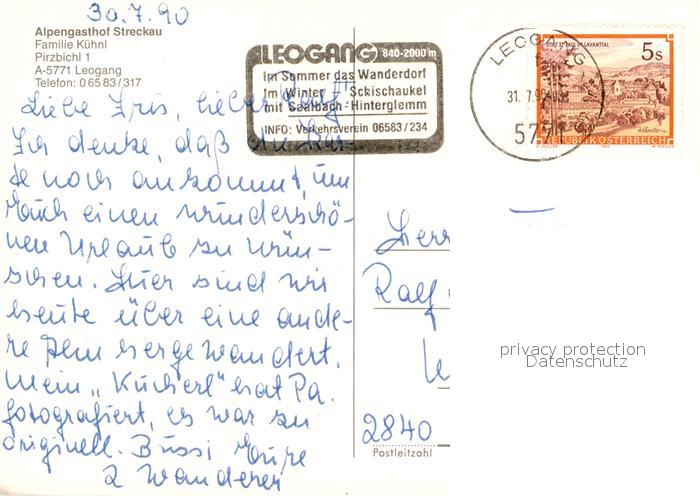 30.7.90
Alpengasthof Streckau
Familie Kühnl
Pirzbichl 1
A-5771 Leogang
Telefon: 0 65 83/317
LEOGANG 840-2000 m
Im Sommer das Wanderdorf
Im Winter Schischaukel
mit Saalbach-Hinterglemm
INFO: Verkehrsverein 06583/234
LEOGANG
31.7.90
5771
STIFT ST. PAUL IM LAVANTTAL
5s
REPUBLIK ÖSTERREICH
Liebe Iris, lieber Ralf!
Ich denke, daß die Kar-
te noch ankommt, um
Euch einen wunderschö-
nen Urlaub zu wün-
schen. Hier sind wir
heute über eine ande-
re Alm hergewandert.
Mein "Kücherl" hat Pa.
fotografiert, es war zu
originell. Bussi Eure
2 Wanderer
Herr
Ralf
2840
Postleitzahl
privacy protection
Datenschutz